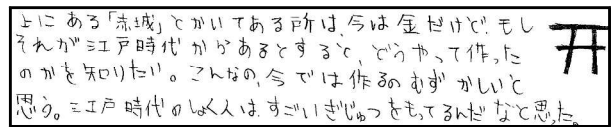 上にある「赤城」とかいてある所は、今は金だけど、もし
それが江戸時代からあるとすると、どうやって作った
のかを知りたい。こんなの、今では作るのむずかしいと
思う。江戸時代のしょく人は、すごいぎじゅつをもってるんだなと思った。